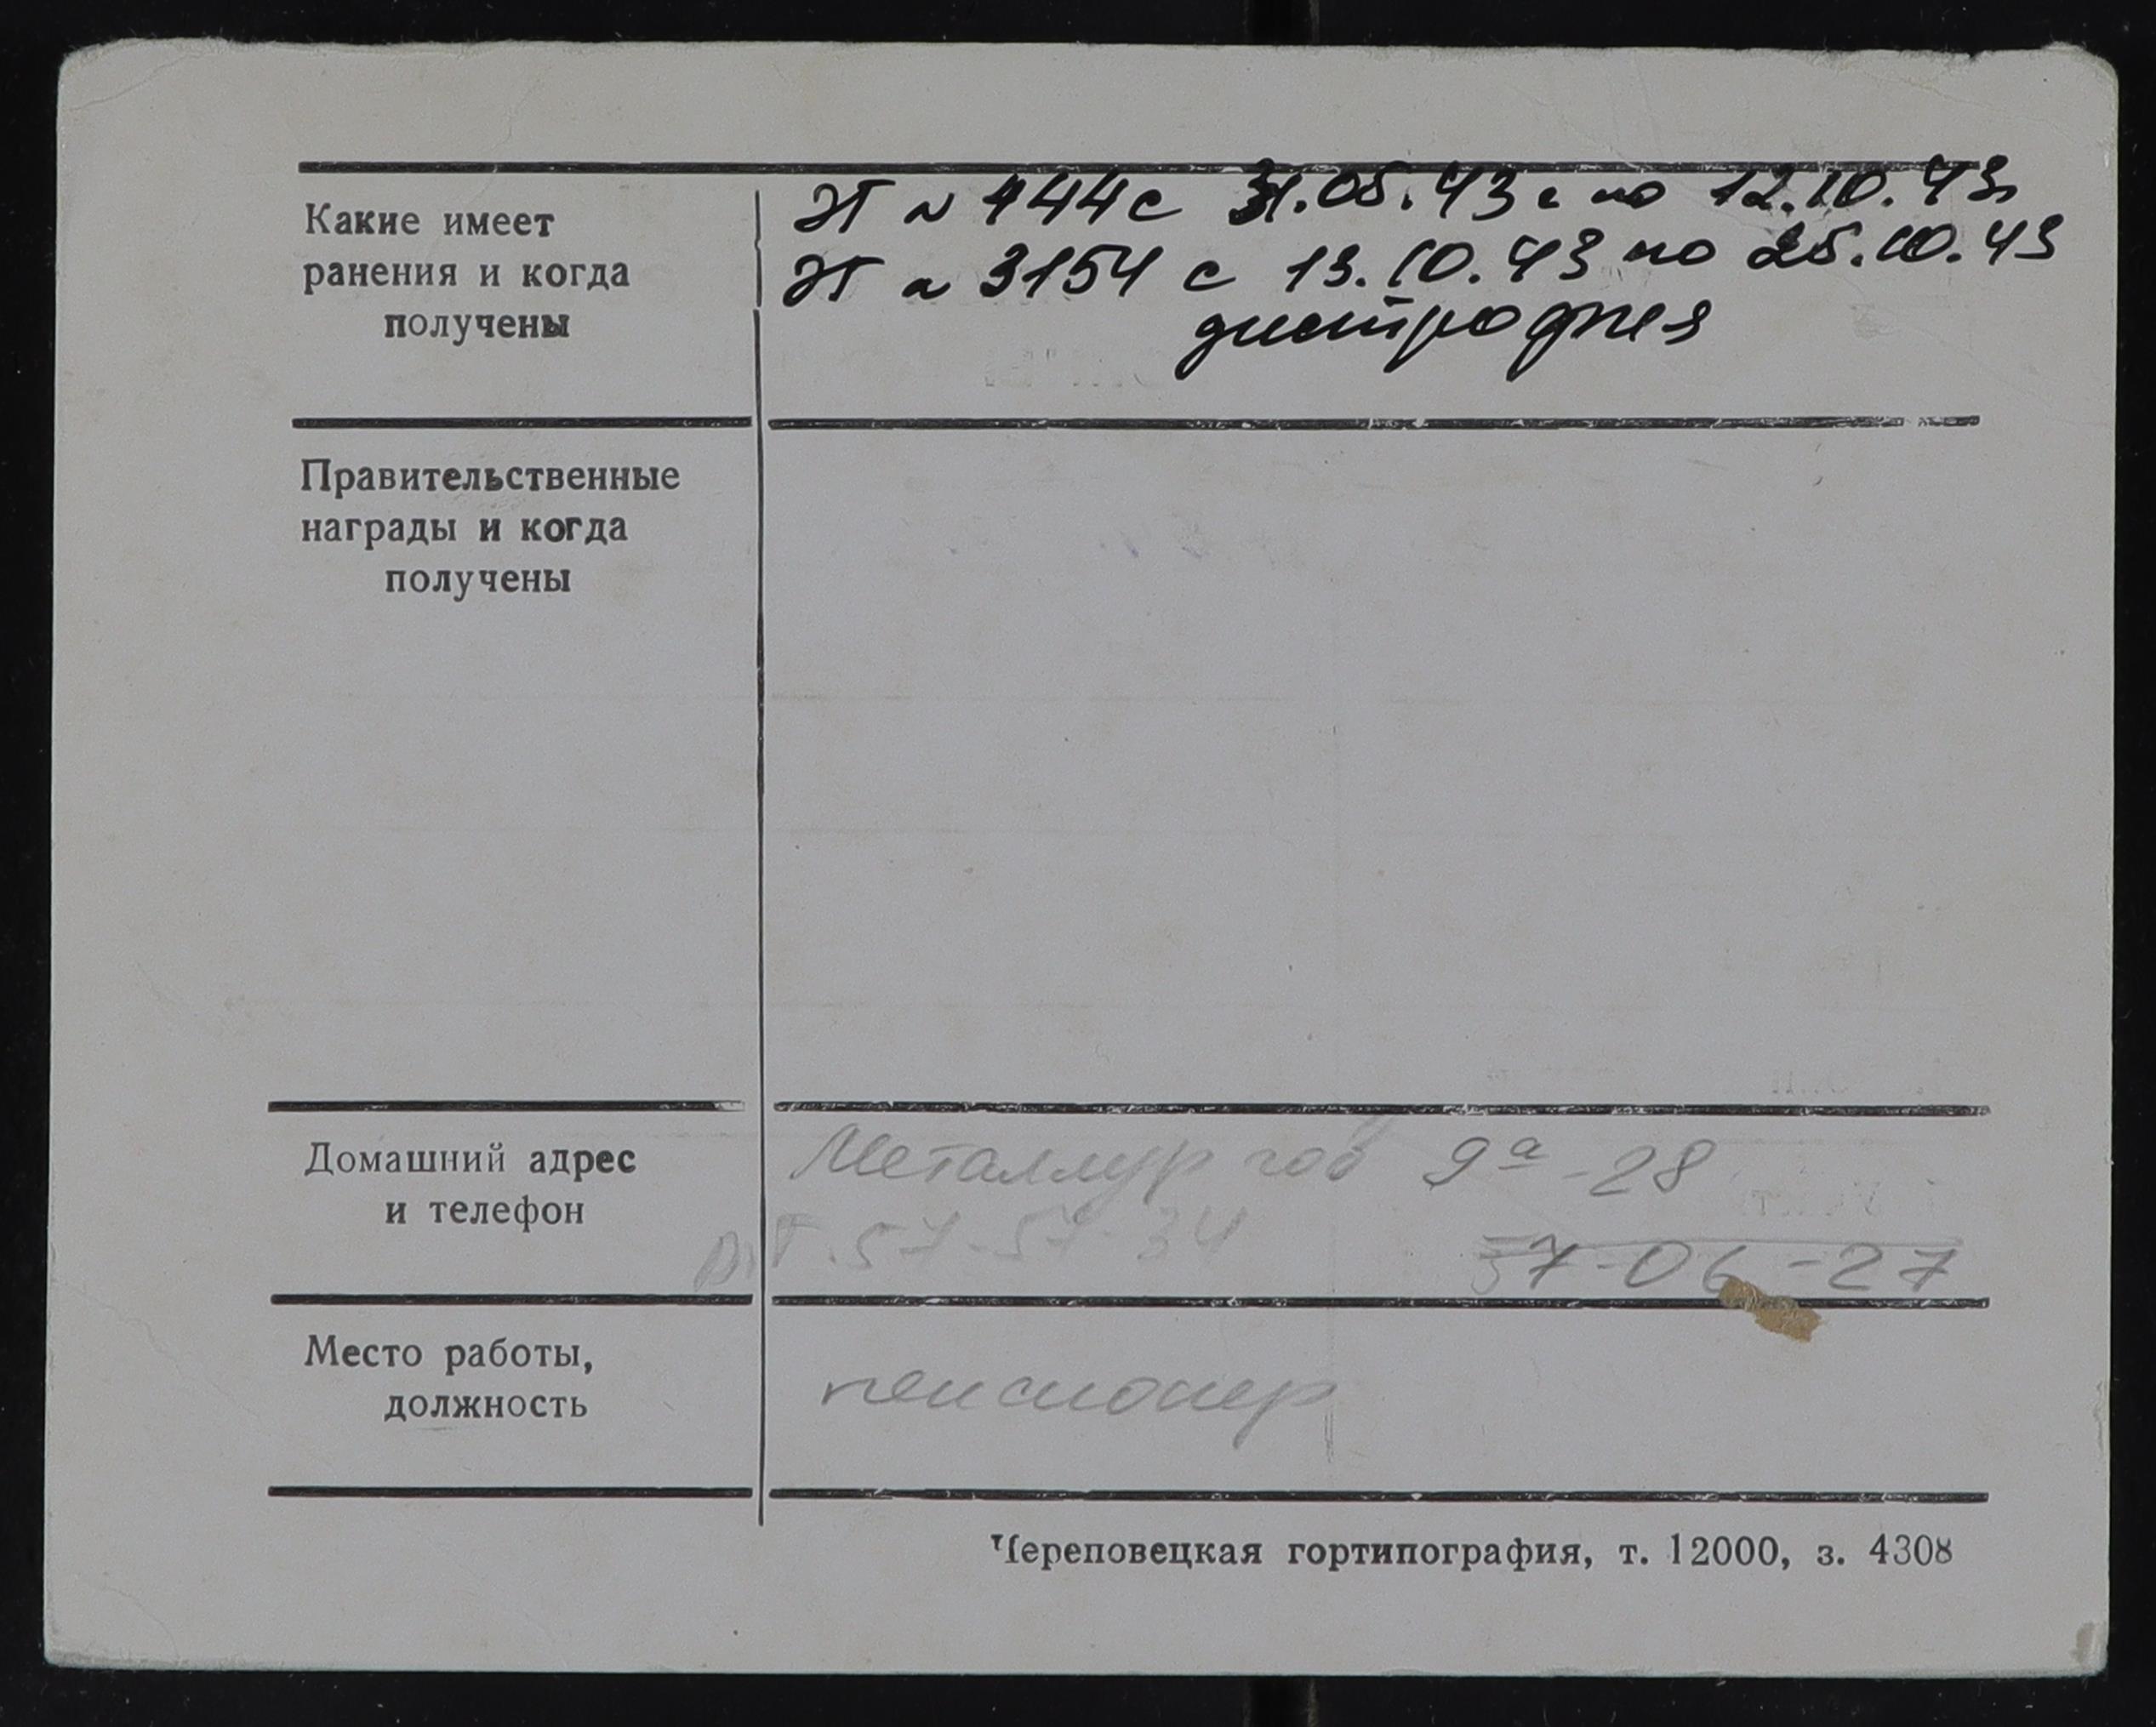 Какие имеет
ранения и когда
получены
ЭГ № 1144 с 31.05.43 г по 12.10.43г
ЭГ № 3154 с 13.10.43 по 25.10.43
дистрофия
Правительственные
награды и когда
получены
Домашний адрес
и телефон
Металлургов 9а-28
Д.Т. 57-57-34
57-06-27
Место работы,
должность
пенсионер
Череповецкая гортипография, т. 12000, з. 4308